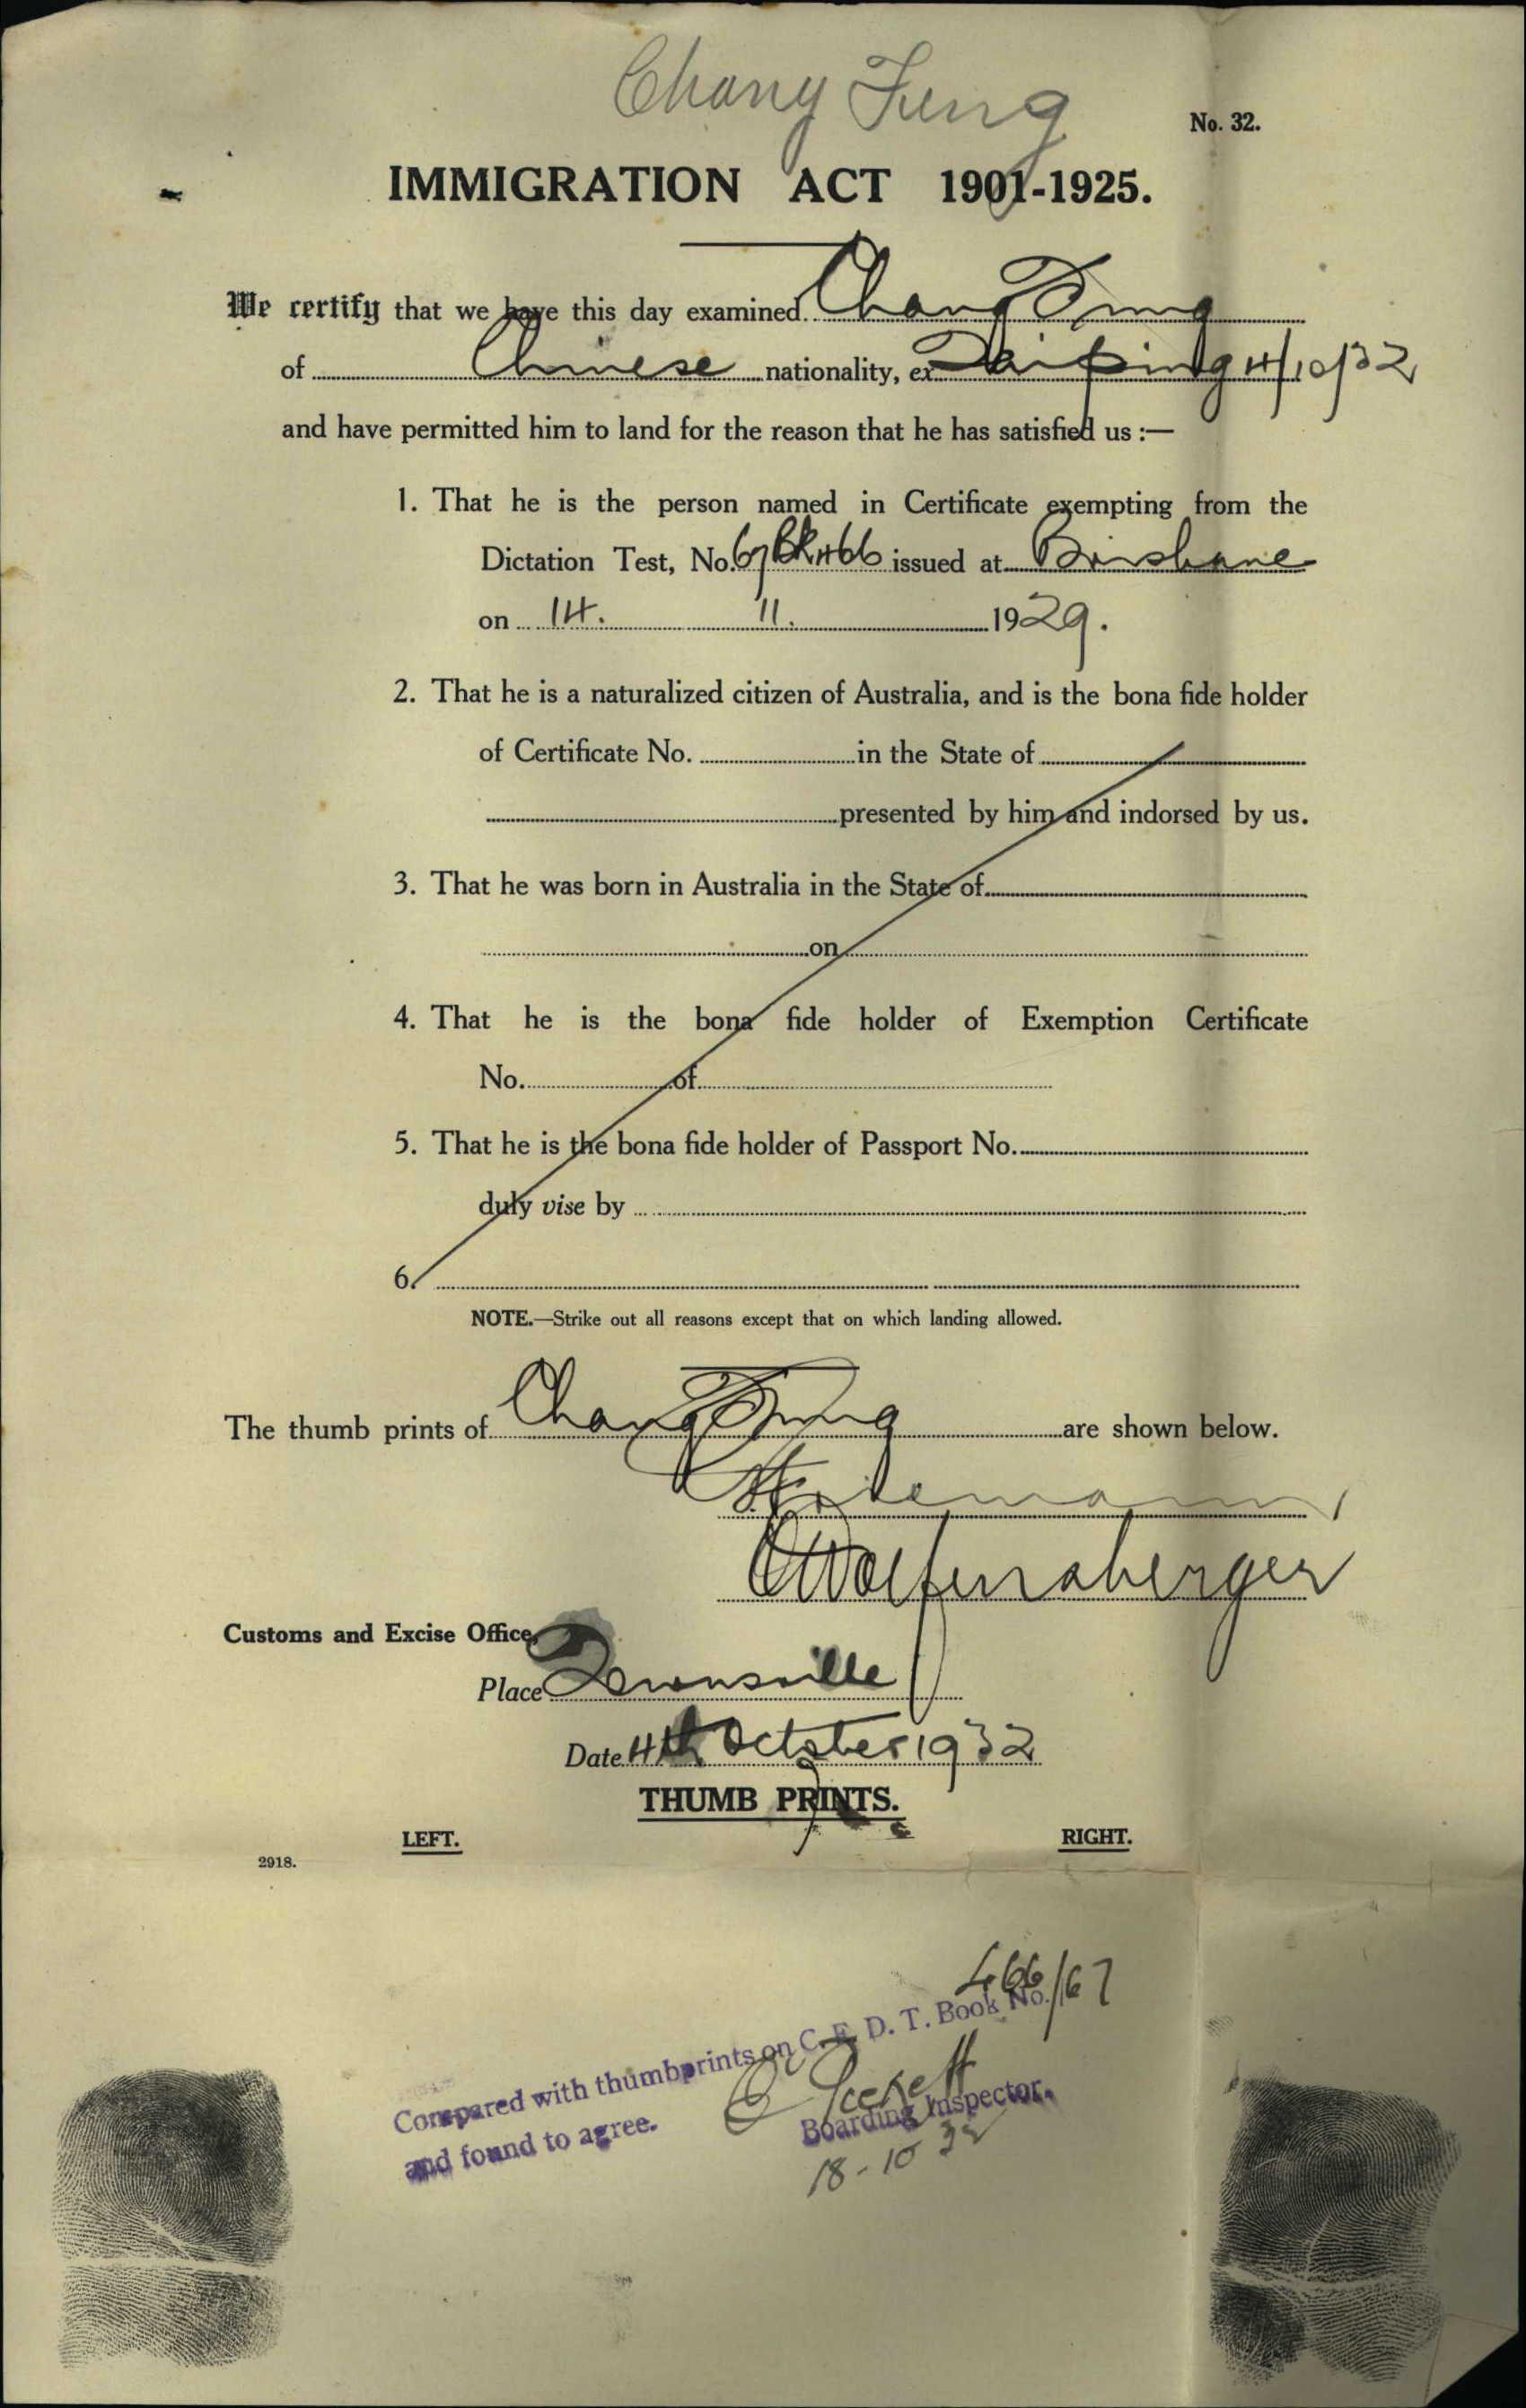 Chang Fung
No. 32.
IMMIGRATION ACT 1901-1925.
We certify that we have this day examined Chang Fung
of Chinese nationality, ex Taiping 4/10/32
and have permitted him to land for the reason that he has satisfied us :—
1. That he is the person named in Certificate exempting from the
Dictation Test, No. 67 Bk 466 issued at Brisbane
on 14. 11. 1929.
2. That he is a naturalized citizen of Australia, and is the bona fide holder
of Certificate No. in the State of
presented by him and indorsed by us.
3. That he was born in Australia in the State of
on
4. That he is the bona fide holder of Exemption Certificate
No. of
5. That he is the bona fide holder of Passport No.
duly vise by
6.
NOTE.—Strike out all reasons except that on which landing allowed.
The thumb prints of Chang Fung are shown below.
Wolfensberger
Customs and Excise Office,
Place Townsville
Date 4th October 1932
THUMB PRINTS.
LEFT. RIGHT.
2918.
466/67
Compared with thumbprints on C. E. D. T. Book No.
and found to agree.
Boarding Inspector.
18-10 32